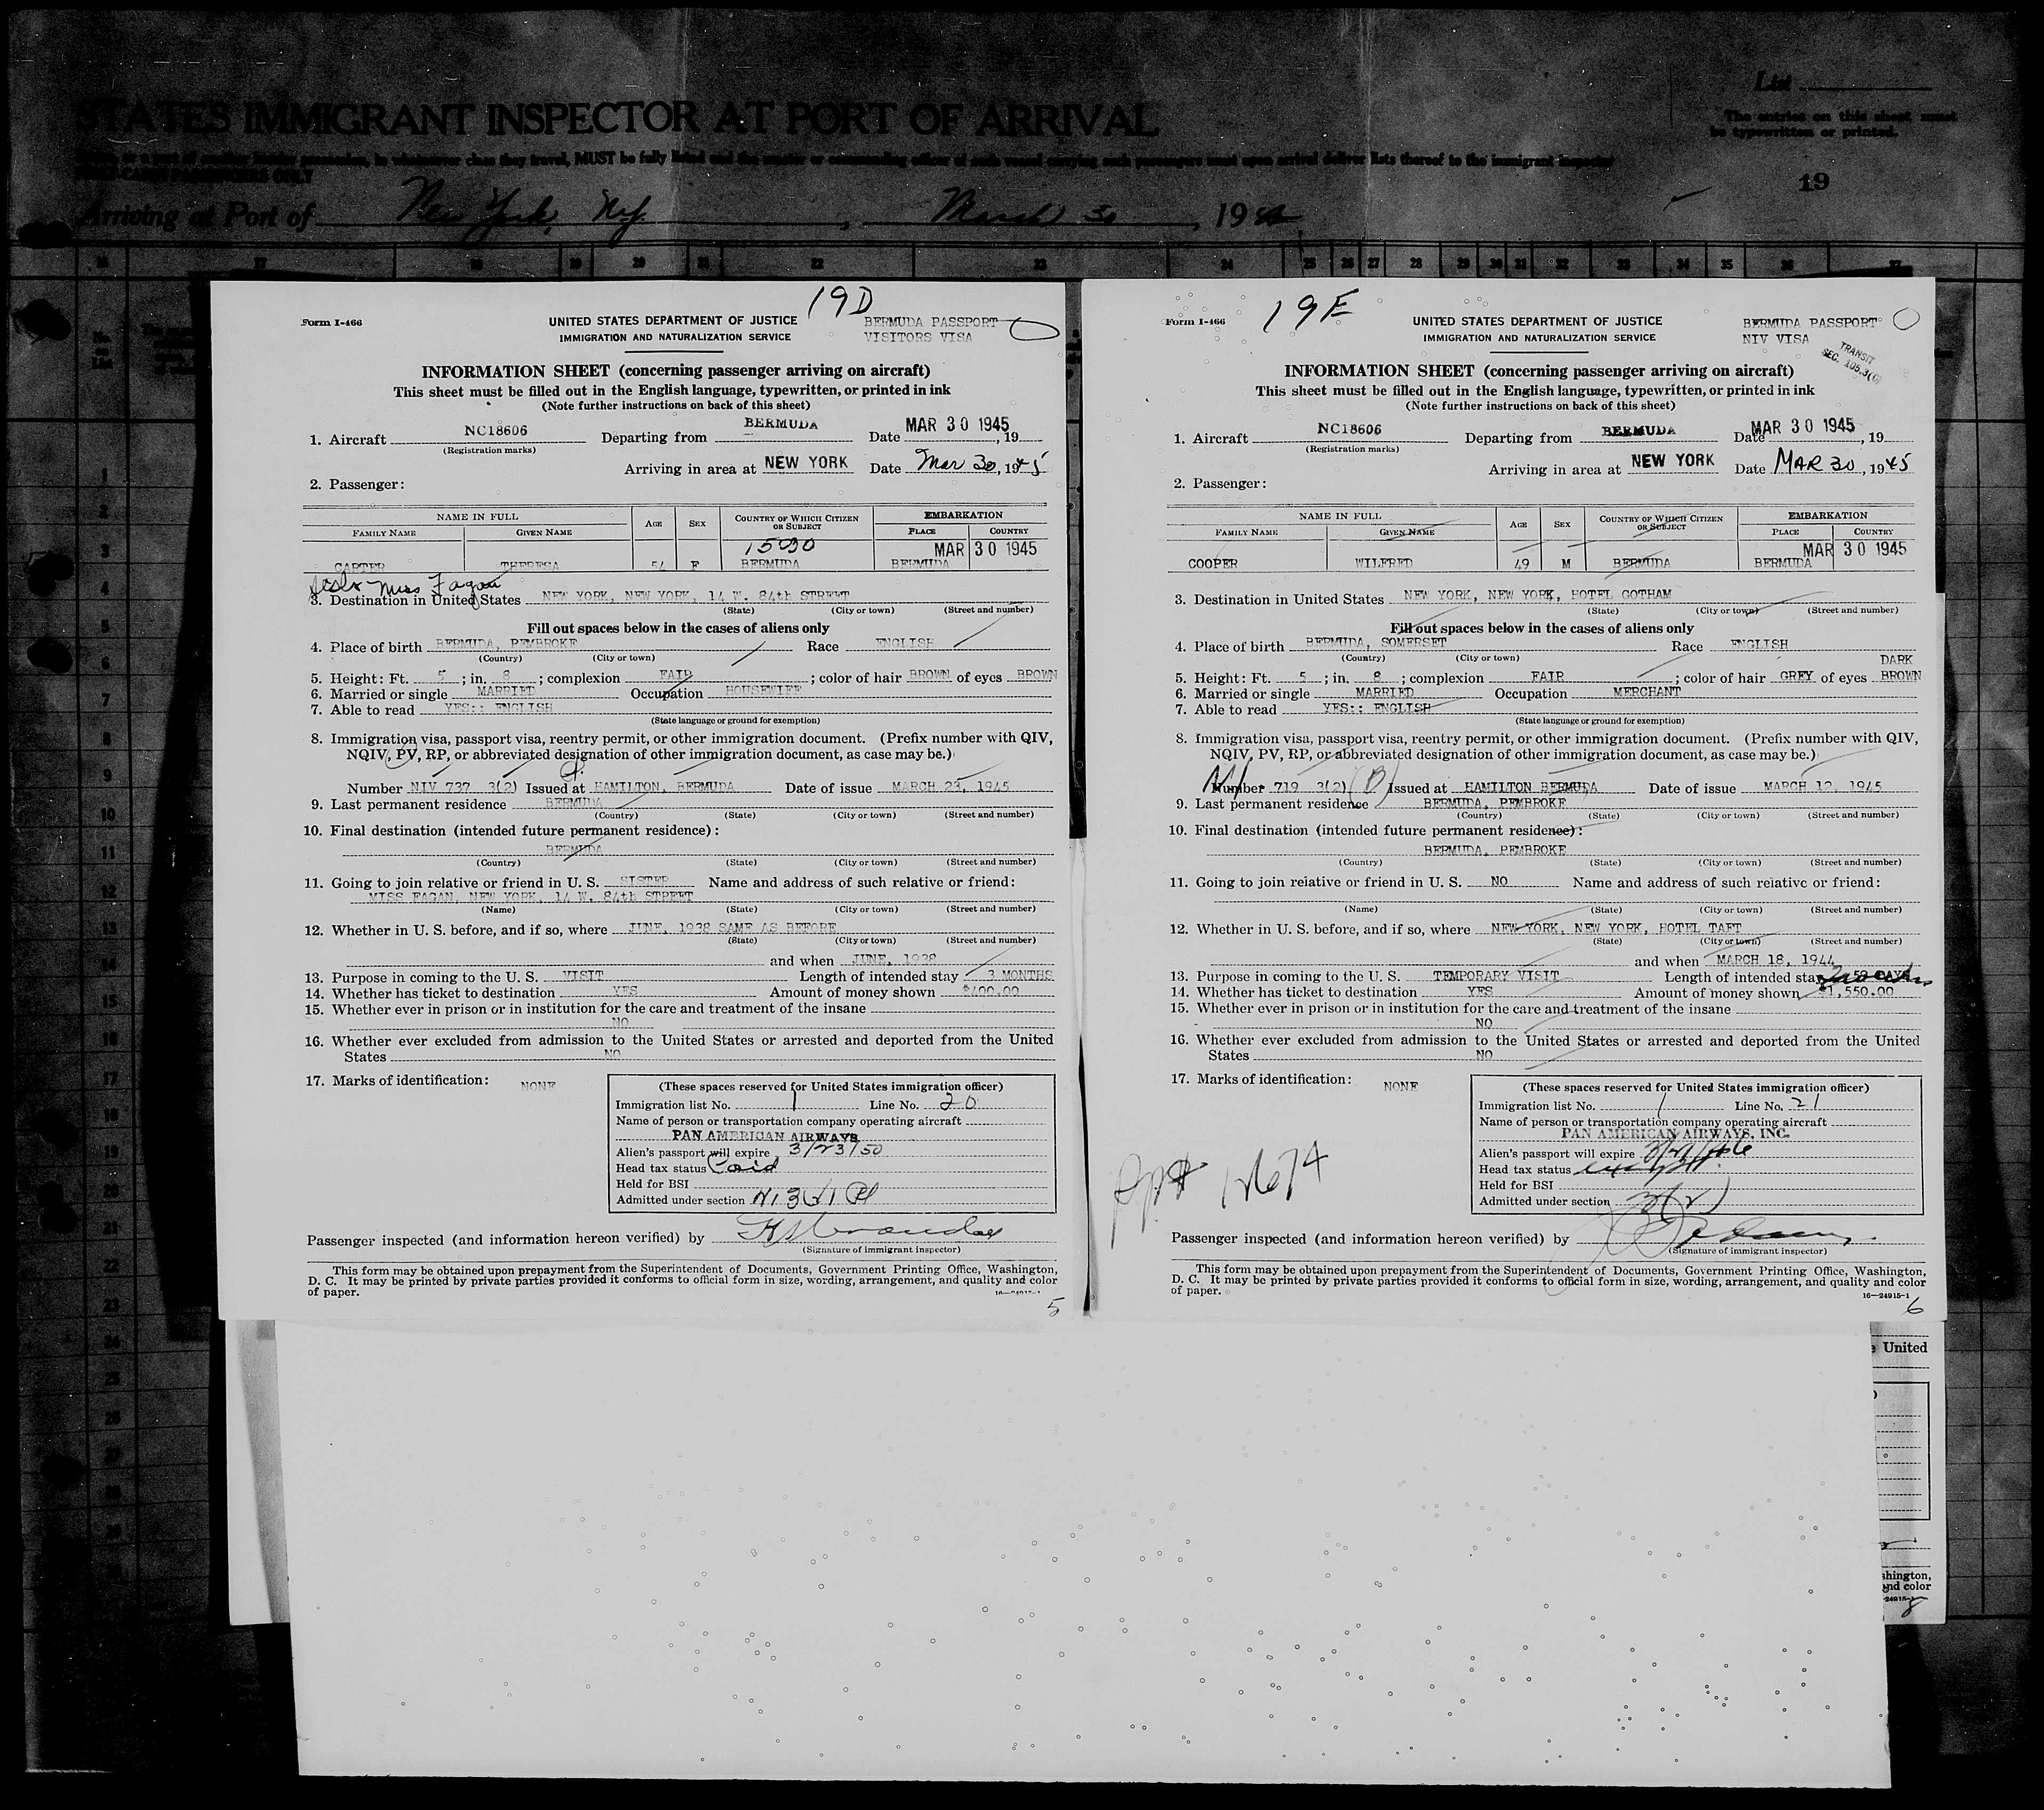 List
STATES IMMIGRANT INSPECTOR AT PORT OF ARRIVAL
The entries on this sheet must
be typewritten or printed.
19
Arriving at Port of New York, N.Y. , March 30 , 19
19D
Form I-466
UNITED STATES DEPARTMENT OF JUSTICE
IMMIGRATION AND NATURALIZATION SERVICE
BERMUDA PASSPORT
VISITORS VISA
INFORMATION SHEET (concerning passenger arriving on aircraft)
This sheet must be filled out in the English language, typewritten, or printed in ink
(Note further instructions on back of this sheet)
1. Aircraft NC18606 Departing from BERMUDA Date MAR 30 1945, 19
(Registration marks)
Arriving in area at NEW YORK Date Mar 30, 1945
2. Passenger:
NAME IN FULL AGE SEX COUNTRY OF WHICH CITIZEN OR SUBJECT EMBARKATION
FAMILY NAME GIVEN NAME PLACE COUNTRY
15030 MAR 30 1945
CARTER THERESA 54 F BERMUDA BERMUDA
Miss Fagan
3. Destination in United States NEW YORK, NEW YORK, 14 W. 84th STREET
(State) (City or town) (Street and number)
Fill out spaces below in the cases of aliens only
4. Place of birth BERMUDA, PEMBROKE Race ENGLISH
(Country) (City or town)
5. Height: Ft. 5 ; in. 8 ; complexion FAIR ; color of hair BROWN of eyes BROWN
6. Married or single MARRIED Occupation HOUSEWIFE
7. Able to read YES:: ENGLISH
(State language or ground for exemption)
8. Immigration visa, passport visa, reentry permit, or other immigration document. (Prefix number with QIV,
NQIV, PV, RP, or abbreviated designation of other immigration document, as case may be.)
Number NIV 737 3(2) Issued at HAMILTON, BERMUDA Date of issue MARCH 23, 1945
9. Last permanent residence BERMUDA
(Country) (State) (City or town) (Street and number)
10. Final destination (intended future permanent residence):
BERMUDA
(Country) (State) (City or town) (Street and number)
11. Going to join relative or friend in U. S. SISTER Name and address of such relative or friend:
MISS FAGAN, NEW YORK, 14 W. 84th STREET
(Name) (State) (City or town) (Street and number)
12. Whether in U. S. before, and if so, where JUNE, 1938 SAME AS BEFORE
(State) (City or town) (Street and number)
and when JUNE, 1938
13. Purpose in coming to the U. S. VISIT Length of intended stay 3 MONTHS
14. Whether has ticket to destination YES Amount of money shown $400.00
15. Whether ever in prison or in institution for the care and treatment of the insane
NO
16. Whether ever excluded from admission to the United States or arrested and deported from the United
States NO
17. Marks of identification: NONE
(These spaces reserved for United States immigration officer)
Immigration list No. 1 Line No. 20
Name of person or transportation company operating aircraft
PAN AMERICAN AIRWAYS
Alien's passport will expire 3/23/50
Head tax status Paid
Held for BSI
Admitted under section
Passenger inspected (and information hereon verified) by
(Signature of immigrant inspector)
This form may be obtained upon prepayment from the Superintendent of Documents, Government Printing Office, Washington,
D. C. It may be printed by private parties provided it conforms to official form in size, wording, arrangement, and quality and color
of paper.
5
19E
Form I-466
UNITED STATES DEPARTMENT OF JUSTICE
IMMIGRATION AND NATURALIZATION SERVICE
BERMUDA PASSPORT
NIV VISA
TRANSIT
SEC. 105.3(C)
INFORMATION SHEET (concerning passenger arriving on aircraft)
This sheet must be filled out in the English language, typewritten, or printed in ink
(Note further instructions on back of this sheet)
1. Aircraft NC18606 Departing from BERMUDA Date MAR 30 1945, 19
(Registration marks)
Arriving in area at NEW YORK Date MAR 30, 1945
2. Passenger:
NAME IN FULL AGE SEX COUNTRY OF WHICH CITIZEN OR SUBJECT EMBARKATION
FAMILY NAME GIVEN NAME PLACE COUNTRY
MAR 30 1945
COOPER WILFRED 49 M BERMUDA BERMUDA
3. Destination in United States NEW YORK, NEW YORK, HOTEL GOTHAM
(State) (City or town) (Street and number)
Fill out spaces below in the cases of aliens only
4. Place of birth BERMUDA, SOMERSET Race ENGLISH
(Country) (City or town)
DARK
5. Height: Ft. 5 ; in. 8 ; complexion FAIR ; color of hair GREY of eyes BROWN
6. Married or single MARRIED Occupation MERCHANT
7. Able to read YES:: ENGLISH
(State language or ground for exemption)
8. Immigration visa, passport visa, reentry permit, or other immigration document. (Prefix number with QIV,
NQIV, PV, RP, or abbreviated designation of other immigration document, as case may be.)
Number 719 3(2) (B) Issued at HAMILTON BERMUDA Date of issue MARCH 12, 1945
9. Last permanent residence BERMUDA, PEMBROKE
(Country) (State) (City or town) (Street and number)
10. Final destination (intended future permanent residence):
BERMUDA, PEMBROKE
(Country) (State) (City or town) (Street and number)
11. Going to join relative or friend in U. S. NO Name and address of such relative or friend:
(Name) (State) (City or town) (Street and number)
12. Whether in U. S. before, and if so, where NEW YORK, NEW YORK, HOTEL TAFT
(State) (City or town) (Street and number)
and when MARCH 18, 1944
13. Purpose in coming to the U. S. TEMPORARY VISIT Length of intended stay DAYS
14. Whether has ticket to destination YES Amount of money shown $1,550.00
15. Whether ever in prison or in institution for the care and treatment of the insane
NO
16. Whether ever excluded from admission to the United States or arrested and deported from the United
States NO
17. Marks of identification: NONE
(These spaces reserved for United States immigration officer)
Immigration list No. 1 Line No. 21
Name of person or transportation company operating aircraft
PAN AMERICAN AIRWAYS, INC.
Alien's passport will expire
Head tax status exempt
Held for BSI
Admitted under section 3(2)
ppt# 12674
Passenger inspected (and information hereon verified) by
(Signature of immigrant inspector)
This form may be obtained upon prepayment from the Superintendent of Documents, Government Printing Office, Washington,
D. C. It may be printed by private parties provided it conforms to official form in size, wording, arrangement, and quality and color
of paper.
16—24915-1
6
United
shington,
and color
24915-1
8